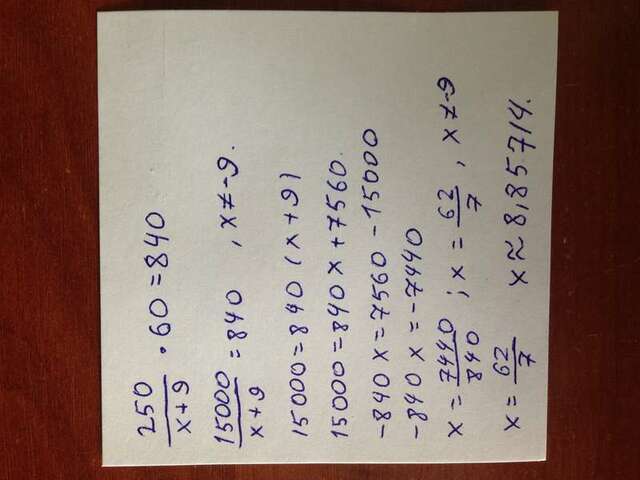 250/(x+9) · 60 = 840
15000/(x+9) = 840 , x ≠ -9.
15000 = 840 (x+9)
15000 = 840 x + 7560.
-840 x = 7560 - 15000
-840 x = -7440
x = 7440/840 ; x = 62/7 , x ≠ -9
x = 62/7 x ≈ 8,85714.